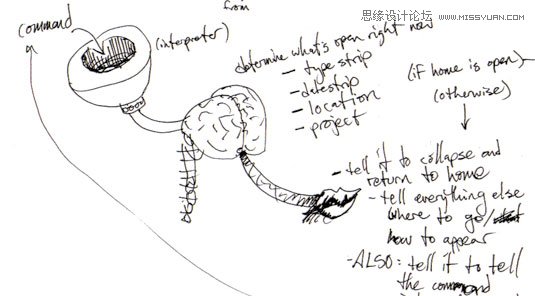 from
思缘设计论坛 WWW.MISSYUAN.COM
command
(interpreter)
determine what's open right now
- type strip
- datestrip
- location
- project
(if home is open)
(otherwise)
- tell it to collapse and
return to home
- tell everything else
where to go/
how to appear
- ALSO: tell it to tell
the command